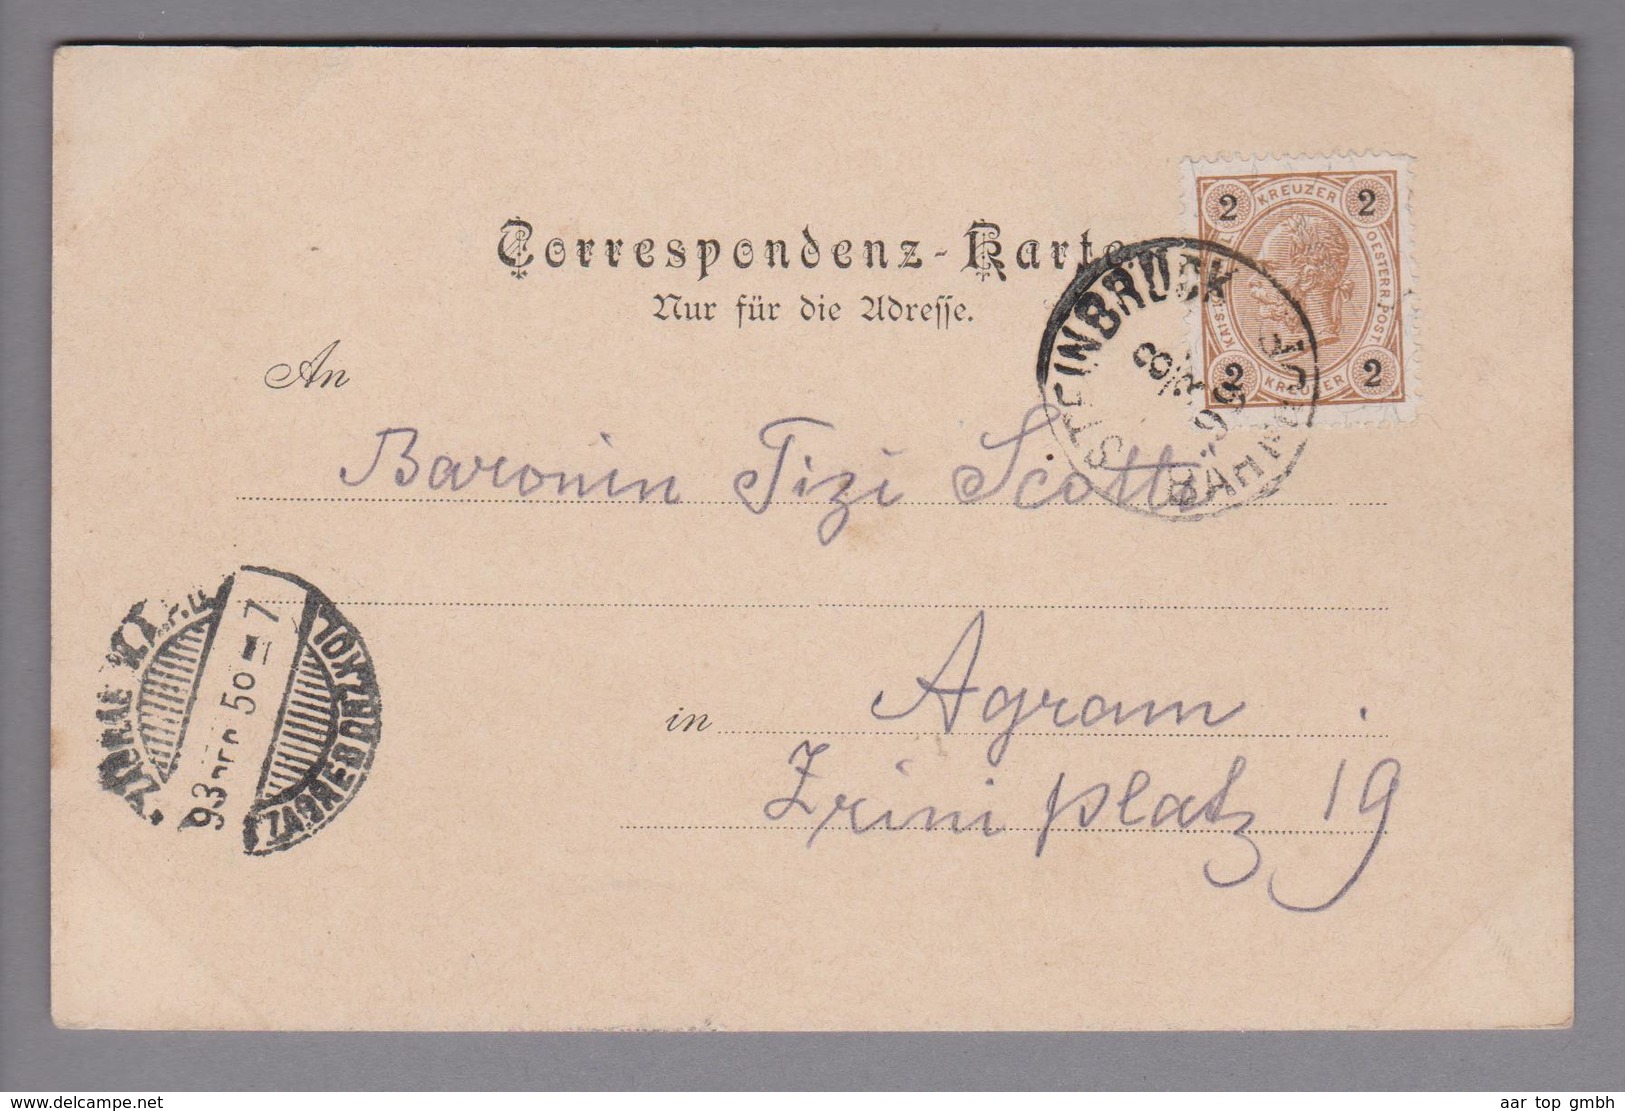 Correspondenz-Karte
Nur für die Adresse.
2 KREUZER 2
KAIS. OESTERR. POST.
2 KREUZER 2
STEINBRÜCK
BAHNHOF
99
An
Baronin Tizi Scotti
in Agram
Zriniplatz 19
ZAGREB
50
www.delcampe.net
aar top gmbh